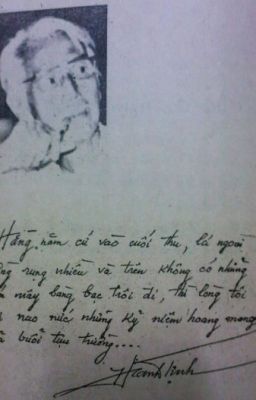 Hàng năm cứ vào cuối thu, lá ngoài
rụng nhiều và trên không có những
mây bàng bạc trôi đi, thì lòng tôi
nao nức những kỷ niệm hoang mang
buổi tựu trường....